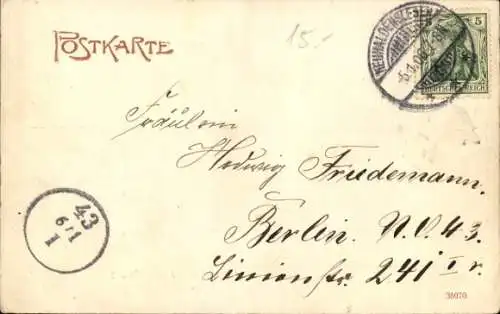 POSTKARTE
15.-
NEUHALDENSLEBEN
5
DEUTSCHES REICH
Fräulein
Hedwig Friedemann.
Berlin. N.O. 43.
Linienstr. 241 I r.
43
6/1
1
38070.